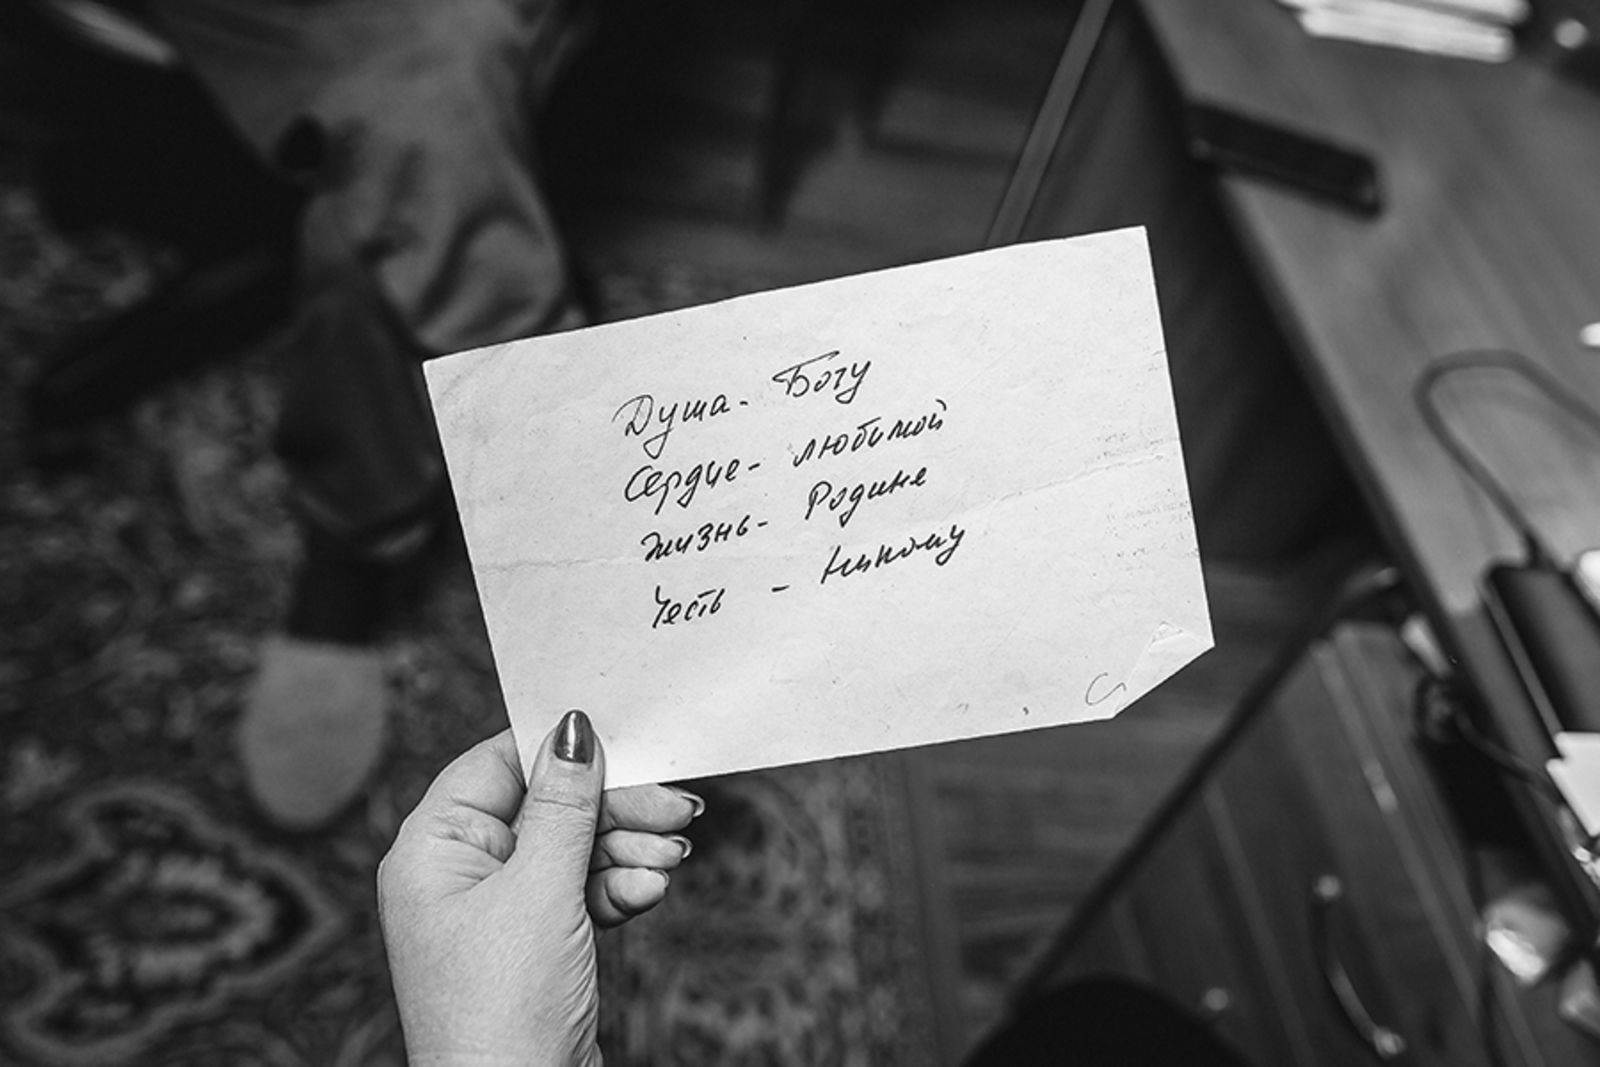 Душа - Богу
Сердце - любимой
Жизнь - Родине
Честь - никому